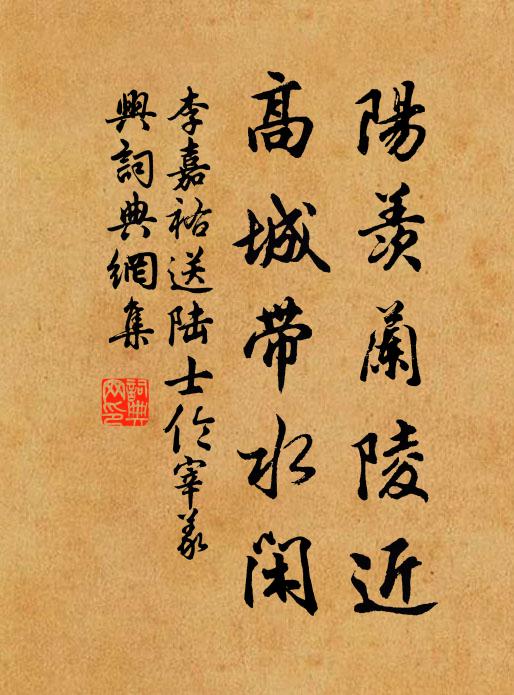 陽羨蘭陵近
高城帶水閑
李嘉祐送陆士伦宰義
興詞典網集
詞典網印